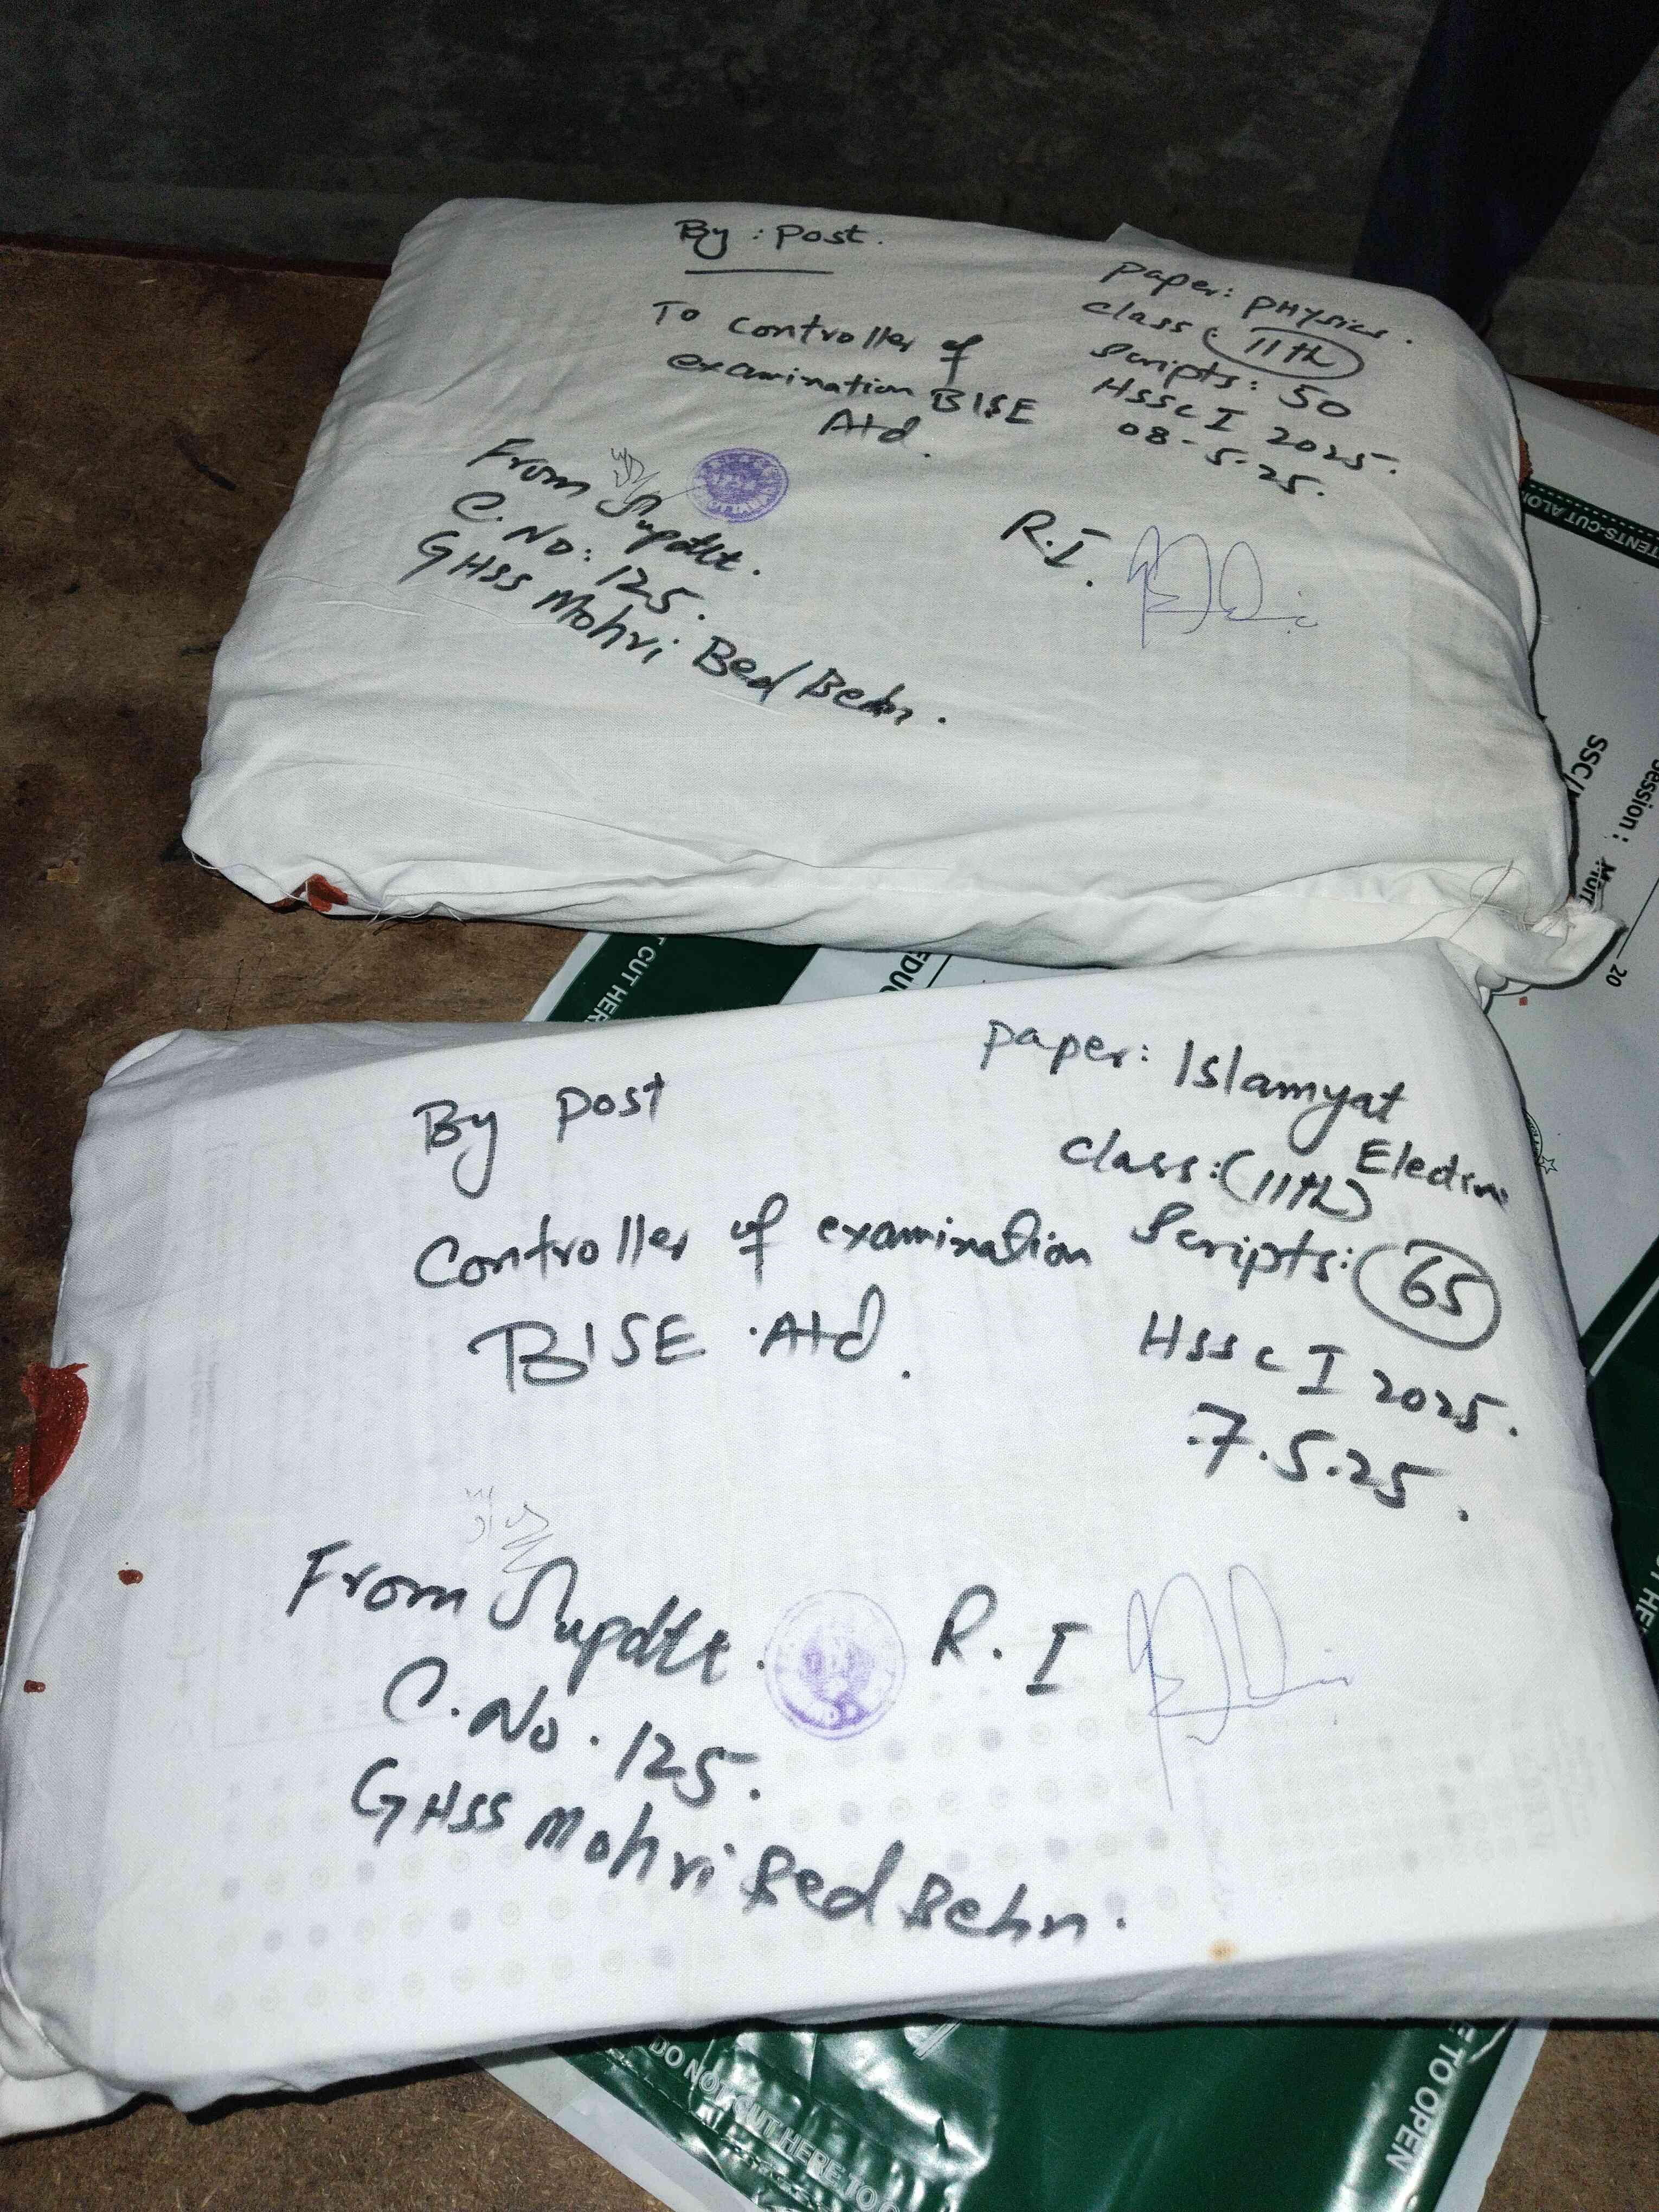 By : Post.
To controller of
examination BISE
Atd.
paper: PHYsics.
class: 11th
Scripts: 50
HSSC I 2025.
08-5-25.
From Supdtt.
C.No: 125.
GHSS Mohri Bed Behn.
R.I.
TENTS-CUT ALON
SSC/
ession :
20
T CUT HER
EDUC
paper: Islamyat
Eledin
class: (11th)
Scripts: 65
HSSC I 2025.
.7.5.25.
By Post
Controller of examination
BISE .Atd.
From Supdtt.
C.No. 125.
GHSS Mohri Bed Behn.
R.I
DO NOT CUT HERE TO O
E TO OPEN
T HE